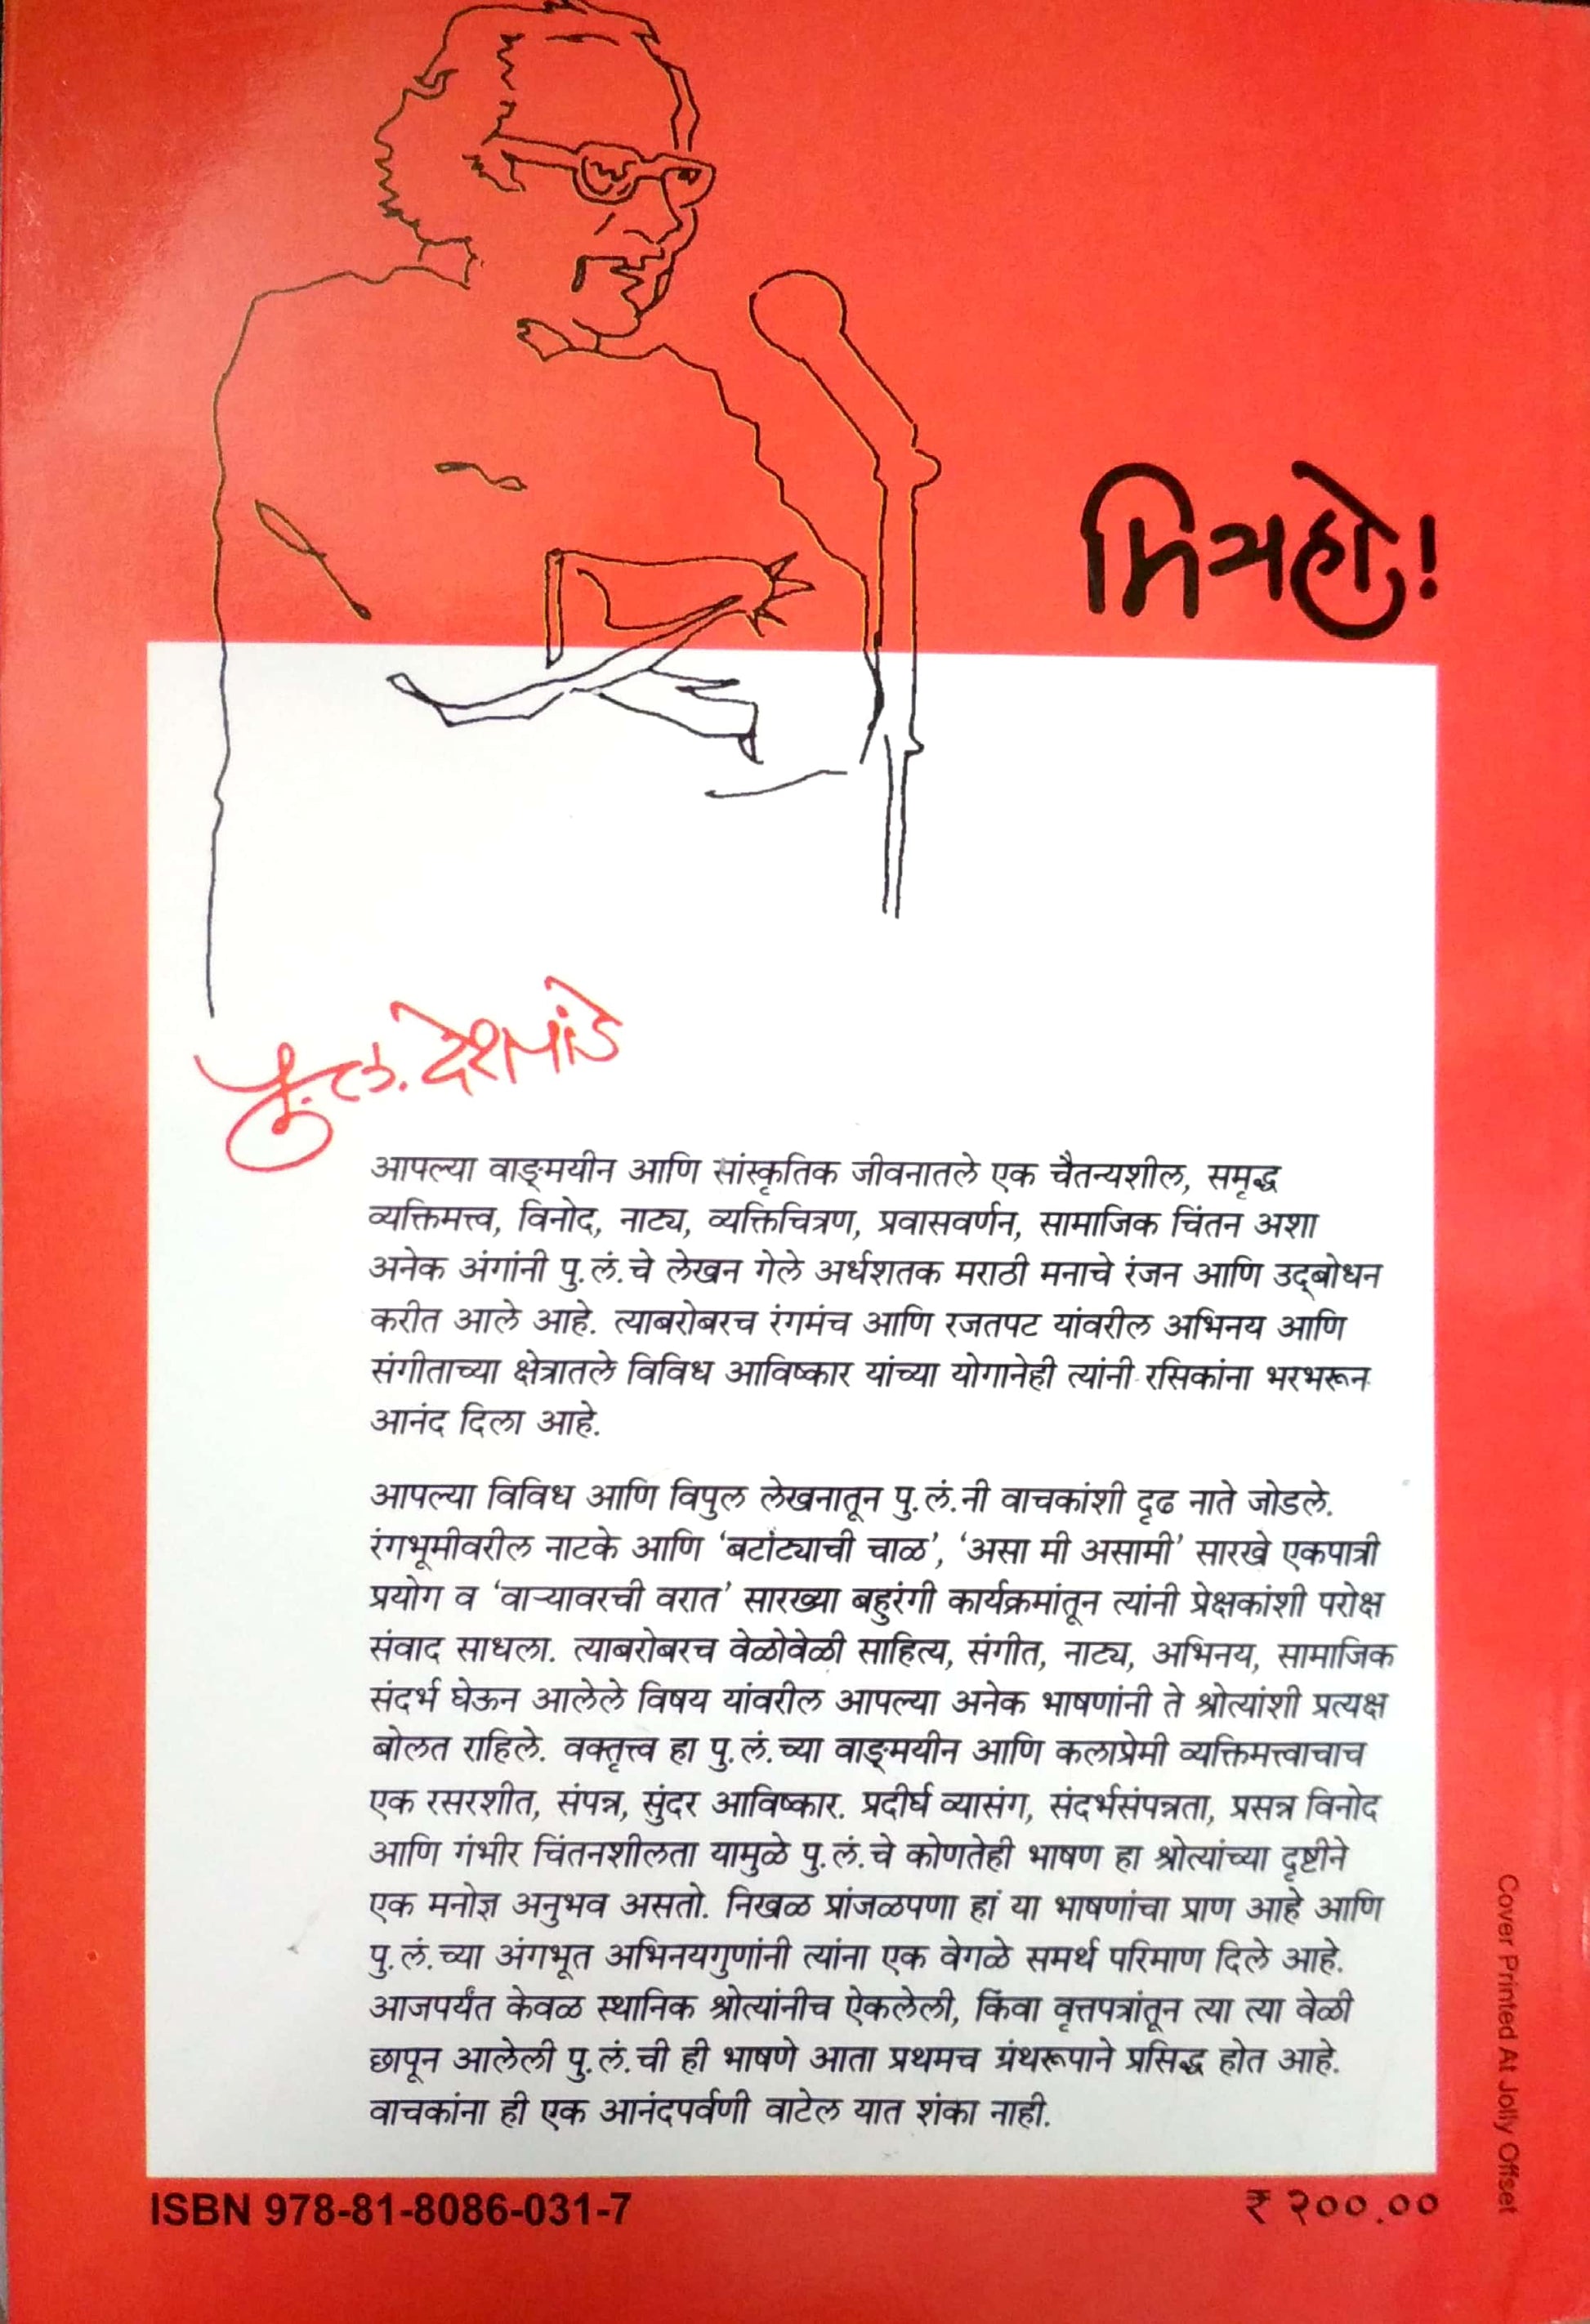 मित्रहो!
पु. ल. देशपांडे
आपल्या वाङ्‌मयीन आणि सांस्कृतिक जीवनातले एक चैतन्यशील, समृद्ध
व्यक्तिमत्त्व, विनोद, नाट्य, व्यक्तिचित्रण, प्रवासवर्णन, सामाजिक चिंतन अशा
अनेक अंगांनी पु.लं.चे लेखन गेले अर्धशतक मराठी मनाचे रंजन आणि उद्‌बोधन
करीत आले आहे. त्याबरोबरच रंगमंच आणि रजतपट यांवरील अभिनय आणि
संगीताच्या क्षेत्रातले विविध आविष्कार यांच्या योगानेही त्यांनी रसिकांना भरभरून
आनंद दिला आहे.
आपल्या विविध आणि विपुल लेखनातून पु.लं.नी वाचकांशी दृढ नाते जोडले.
रंगभूमीवरील नाटके आणि ‘बटाट्याची चाळ’, ‘असा मी असामी’ सारखे एकपात्री
प्रयोग व ‘वाऱ्यावरची वरात’ सारख्या बहुरंगी कार्यक्रमांतून त्यांनी प्रेक्षकांशी परोक्ष
संवाद साधला. त्याबरोबरच वेळोवेळी साहित्य, संगीत, नाट्य, अभिनय, सामाजिक
संदर्भ घेऊन आलेले विषय यांवरील आपल्या अनेक भाषणांनी ते श्रोत्यांशी प्रत्यक्ष
बोलत राहिले. वक्तृत्त्व हा पु.लं.च्या वाङ्‌मयीन आणि कलाप्रेमी व्यक्तिमत्त्वाचाच
एक रसरशीत, संपन्न, सुंदर आविष्कार. प्रदीर्घ व्यासंग, संदर्भसंपन्नता, प्रसन्न विनोद
आणि गंभीर चिंतनशीलता यामुळे पु.लं.चे कोणतेही भाषण हा श्रोत्यांच्या दृष्टीने
एक मनोज्ञ अनुभव असतो. निखळ प्रांजळपणा हां या भाषणांचा प्राण आहे आणि
पु.लं.च्या अंगभूत अभिनयगुणांनी त्यांना एक वेगळे समर्थ परिमाण दिले आहे.
आजपर्यंत केवळ स्थानिक श्रोत्यांनीच ऐकलेली, किंवा वृत्तपत्रांतून त्या त्या वेळी
छापून आलेली पु.लं.ची ही भाषणे आता प्रथमच ग्रंथरूपाने प्रसिद्ध होत आहे.
वाचकांना ही एक आनंदपर्वणी वाटेल यात शंका नाही.
ISBN 978-81-8086-031-7
₹ २००.००
Cover Printed At Jolly Offset